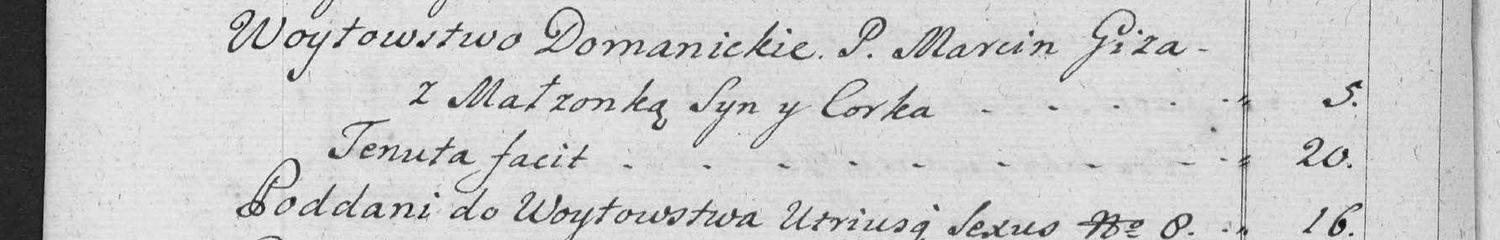 Woytowstwo Domanickie. P. Marcin Giza -
z Małzonką Syn y Corka - - - - - " 5.
Tenuta facit - - - - - - - - - " 20.
Poddani do Woytowstwa Utriusq̃ Sexus No 8. - " 16.